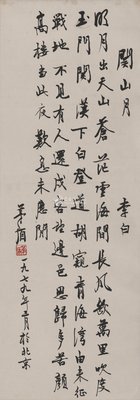 關山月
李白
明月出天山蒼茫雲海間長風幾萬里吹度
玉門關漢下白登道胡窺青海灣由來征
戰地不見有人還戍客望邊邑思歸多苦顏
高樓當此夜歎息未應閒
茅盾
一九七九年月於北京